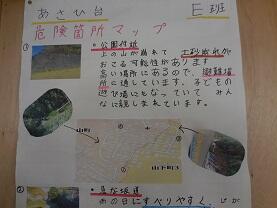 あさひ台
E班
危険箇所マップ
①
・公園付近
上の山が崩れて土砂崩れが
おきる可能性があります
高い場所にあるので、避難場
所に適しています。子どもの
遊び場にもなっていて みん
なに親しまれています。
山町
山下町3
②
・急な坂道
雨の日にすべりやすく、